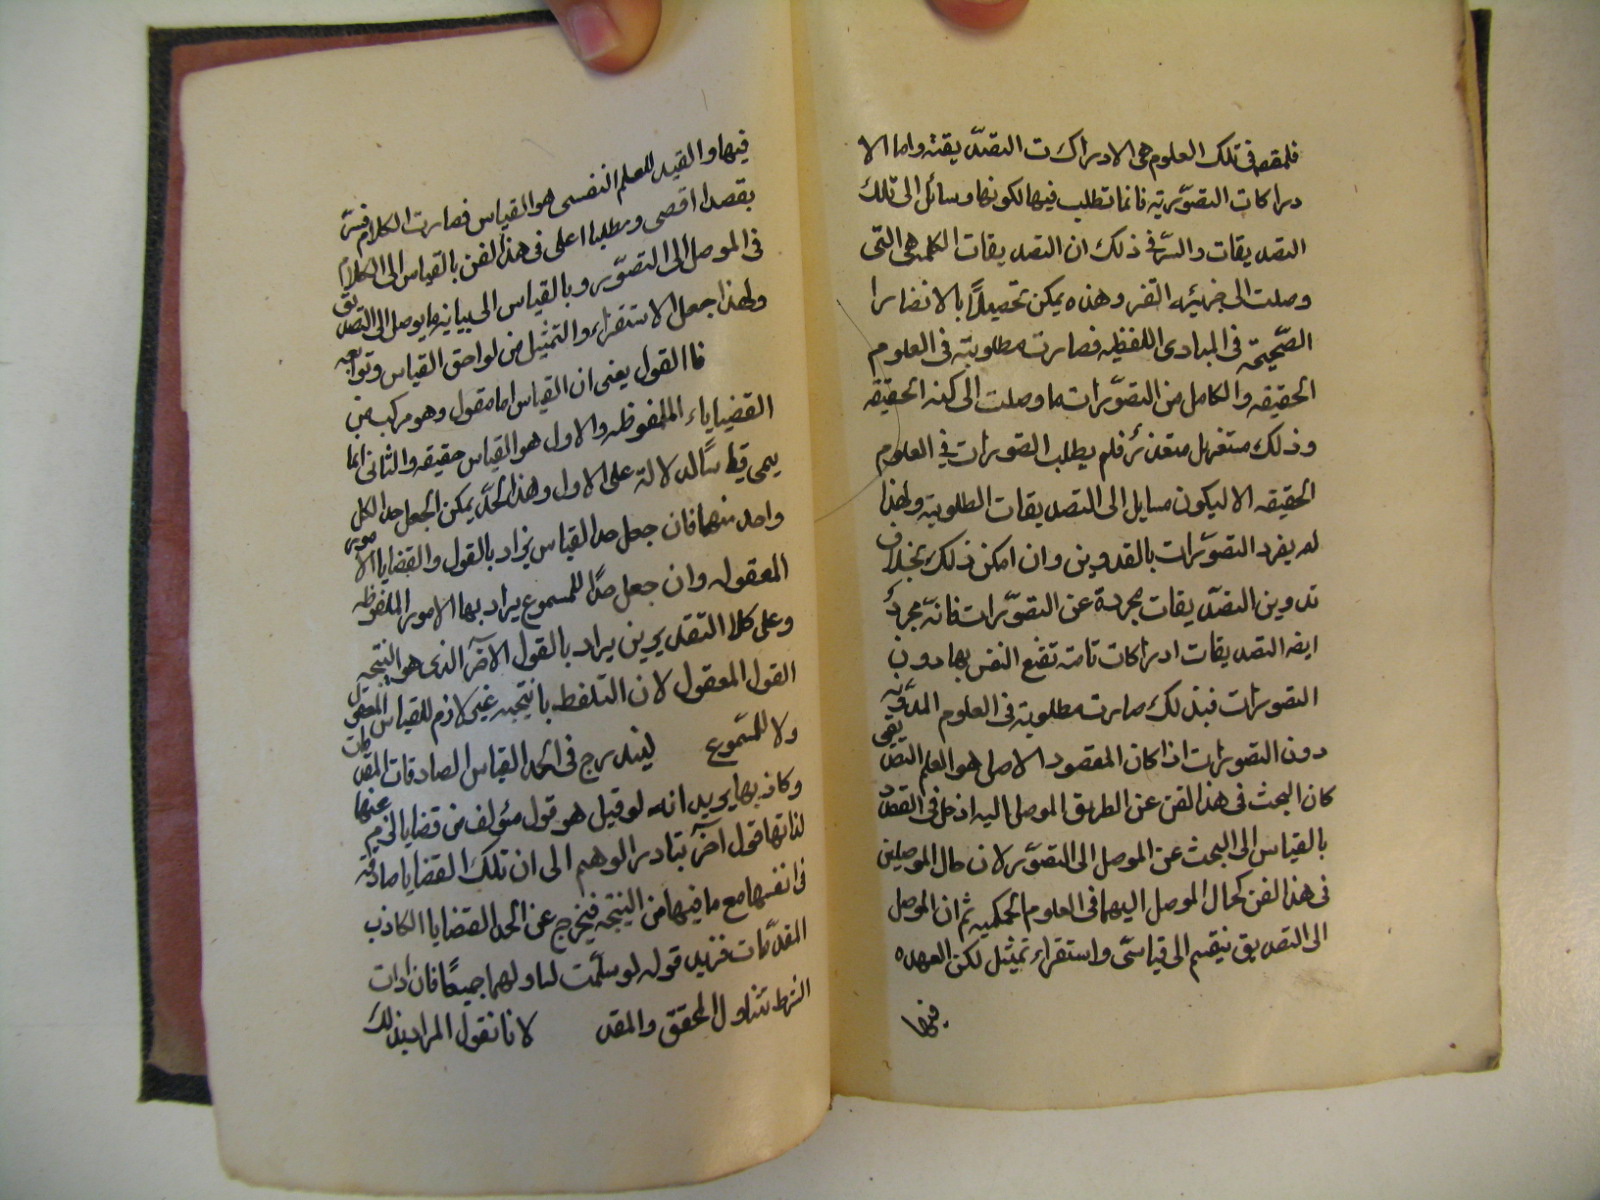 فلمقصد فى تلك العلوم هى الادراكات التصديقته واما الا
دراكات التصوّريته فانما تطلب فيها لكونها وسائل الى تلك
التصديقات والسّر فى ذلك ان التصديقات الكلمه هى التى
وصلت الى وهذه يمكن تحصيلاً بالانضارا
الصّحيحة فى المبادى اللفظيه فصارت مطلوبته فى العلوم
الحقيقه والكامل من التصوّرات ما وصلت الى كنه الحقيقه
وذلك متعذر فلم يطلب التصورات فى العلوم
الحقيقه الا ليكون مسايل الى التصديقات المطلوبته ولهذا
لم يفرد التصوّرات بالتدوين وان امكن ذلك بخلاف
تدوين التصديقات مجردة عن التصوّرات فانه مجردٌ
ايضه التصديقات ادراكات تامته تقنع النفس بها دون
التصورات فبذلك صارت مطلوبته فى العلوم المدوّنه
دون التصورات اذا كان المقصود الاصلى هو العلم التصديقى
كان البحث فى هذا الفن عن الطريق الموصل اليه ادخل فى القصد
بالقياس الى البحث عن الموصل الى التصوّر لان حال الموصلين
فى هذا الفن كحال الموصل اليهما فى العلوم الحكميه ثم ان الموصل
الى التصديق ينقسم الى قياسىّ واستقراء تمثيل لكن العمده
فيها
فيها والقيد للعلم النفسى هو القياس فصارت الكلام فيه
بقصدا اقصى ومطلبا اعلى فى هذا الفن بالقياس الى الكلام
فى الموصل الى التصوّر وبالقياس الى بيانيه ما يوصل الى التصديق
ولهذا جعل الاستقراء والتمثيل من لواحق القياس وتوابعه
فاالقول يعنى ان القياس اما مقول وهو مركب من
القضاياء الملفوظه والاول هو القياس حقيقه والثانى انما
يسمى قياسًا لدلالة على الاول وهذا الحدّ يمكن الجعل حدا لكل
واحد منهما فان جعل حد القياس يراد بالقول والقضايا الامور
المعقوله وان جعل حدًا للمسموع يراد بها الامور الملفوظه
وعلى كلا التقديرين يراد بالقول الآخر الذى هو النتيجه
القول المعقول لان التلفظ بانتيجه غير لازم للقياس المعقول
ولا للمسموع ليندرج فى الحد القياس الصادقات المقدمات
وكاذبها يريد انه لو قيل هو قول مئولف من قضايا لزم عنها
لذاتها قول آخر تبادر الوهم الى ان تلك القضايا صادقة
فى انفسها مع ما فيها من النيتجه فيخرج عن الحد القضايا الكاذب
المقدّمات فزيد قوله لو سلّمت لتناولهما جميعًا فان ادات
الشرط تتناول المحقق والمقدر لانا نقول المراد بذلك